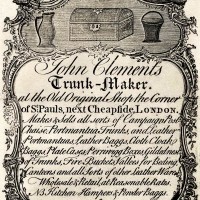 John Clements
Trunk-Maker.
at the Old Original Shop the Corner
of St. Pauls, next Cheapside, LONDON.
Makes & Sells all sorts of Campaign Post
Chaise, Portmantua Trunks, and Leather
Portmantuas, Leather Baggs, Cloth Cloak
Baggs, Plate Cases, Perriwigg Boxes, Gilded Nest
of Trunks, Fire Buckets, Vallees for Beding
Canteens and all Sorts of other Leather Wares
Wholesale & Retail, at Reasonable Rates.
N.B. Kitchen Hampers & Powder Baggs.